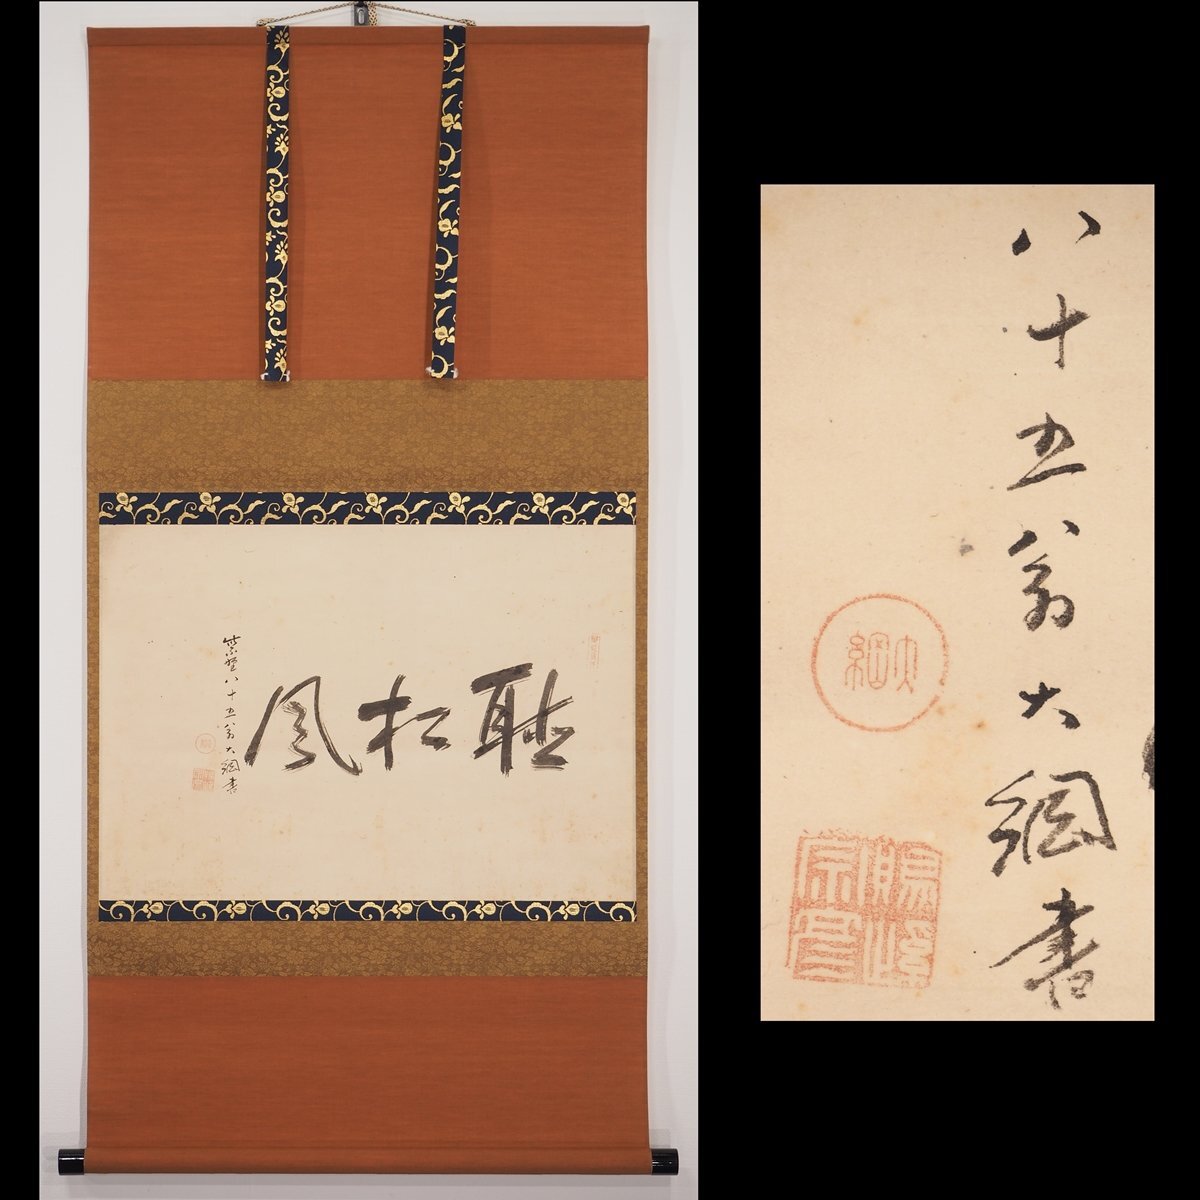 聴松風
紫野八十五翁大綱書
八十五翁大綱書
大綱